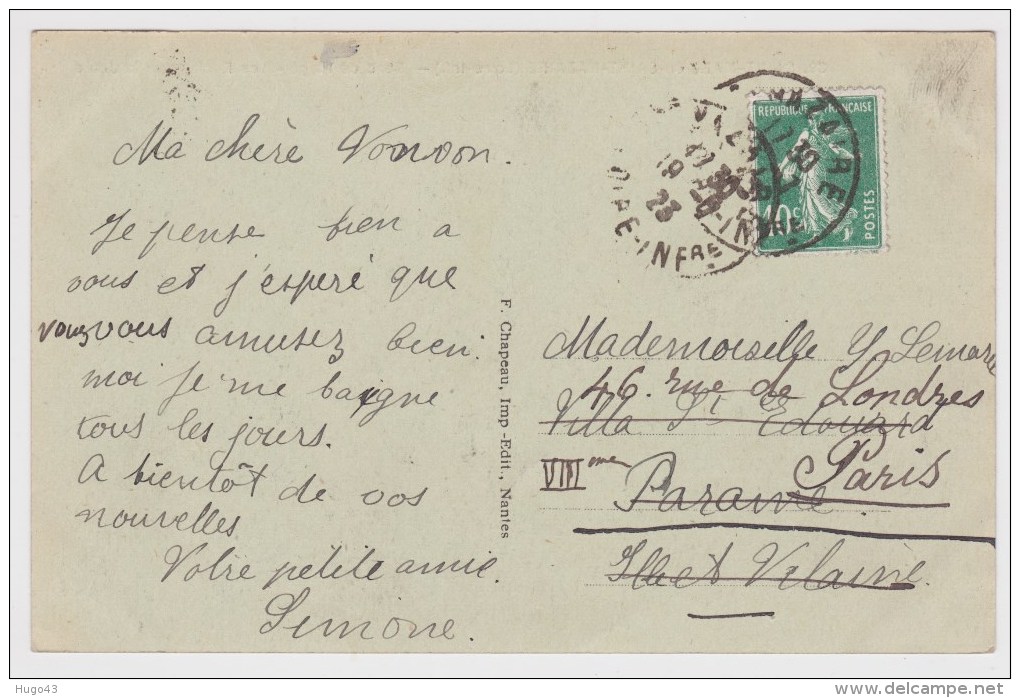 Ma chère Vonvon.
Je pense bien a
vous et j'esperé que
vous vous amusez bien.
moi je me baigne
tous les jours.
A bientôt de vos
nouvelles
Votre petite amie.
Simone.
F. Chapeau, Imp.-Edit., Nantes
REPUBLIQUE FRANÇAISE
POSTES
10c
NAZAIRE
17 30
LOIRE-INFRE
Mademoiselle Y Lemare
46. rue de Londres
Villa St Edouard
VIIIème Paris
Paramé
Ille et Vilaine.
Hugo43
www.delcampe.net